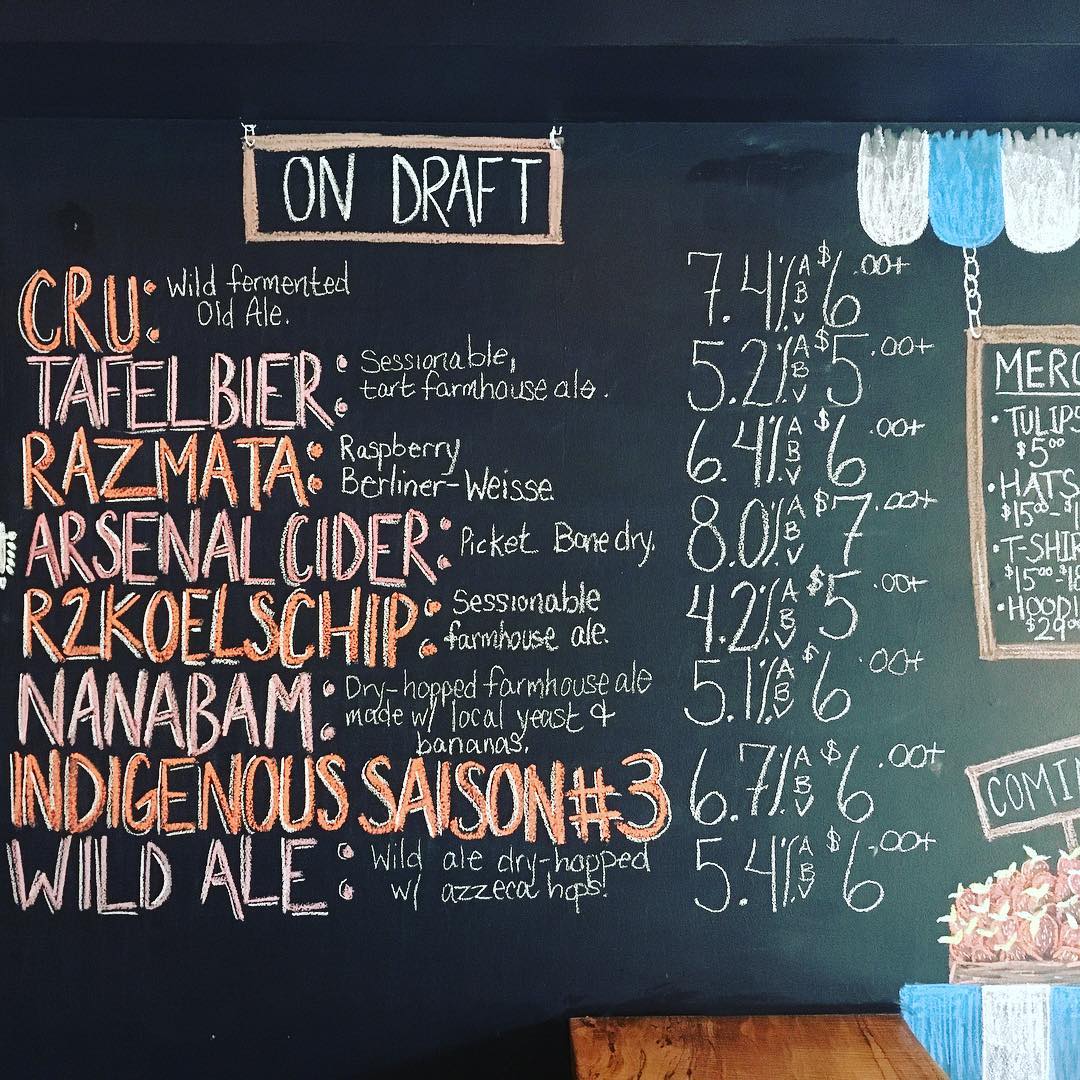 ON DRAFT
CRU: Wild fermented
Old Ale.
7.4% ABV $6.00+
TAFELBIER: Sessionable,
tart farmhouse ale.
5.2% ABV $5.00+
RAZMATA: Raspberry
Berliner-Weisse
6.4% ABV $6.00+
ARSENAL CIDER: Picket Bone dry.
8.0% ABV $7.00+
R2KOELSCHIP: Sessionable
farmhouse ale.
4.2% ABV $5.00+
NANABAM: Dry-hopped farmhouse ale
made w/ local yeast &
bananas.
5.1% ABV $6.00+
INDIGENOUS SAISON #3
6.7% ABV $6.00+
WILD ALE: Wild ale dry-hopped
w/ azzeca hops!
5.4% ABV $6.00+
MERC
• TULIPS
$5.00
• HATS
$15.00-$1
• T-SHIR
$15.00-$18
• HOODI
$29.00
COMIN